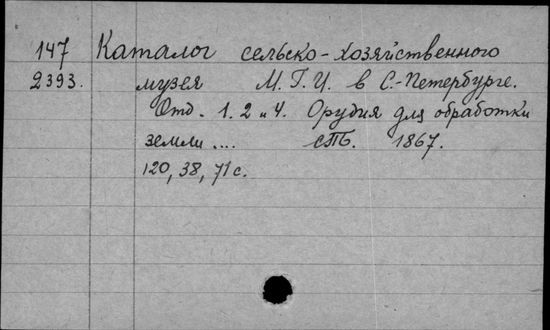 147 Каталог сельско-хозяйственного
2393. музея М.Г.И. в С.-Петербурге.
Отд. 1. 2 и 4. Орудия для обработки
земли .... СПб. 1867.
120, 38, 71 с.